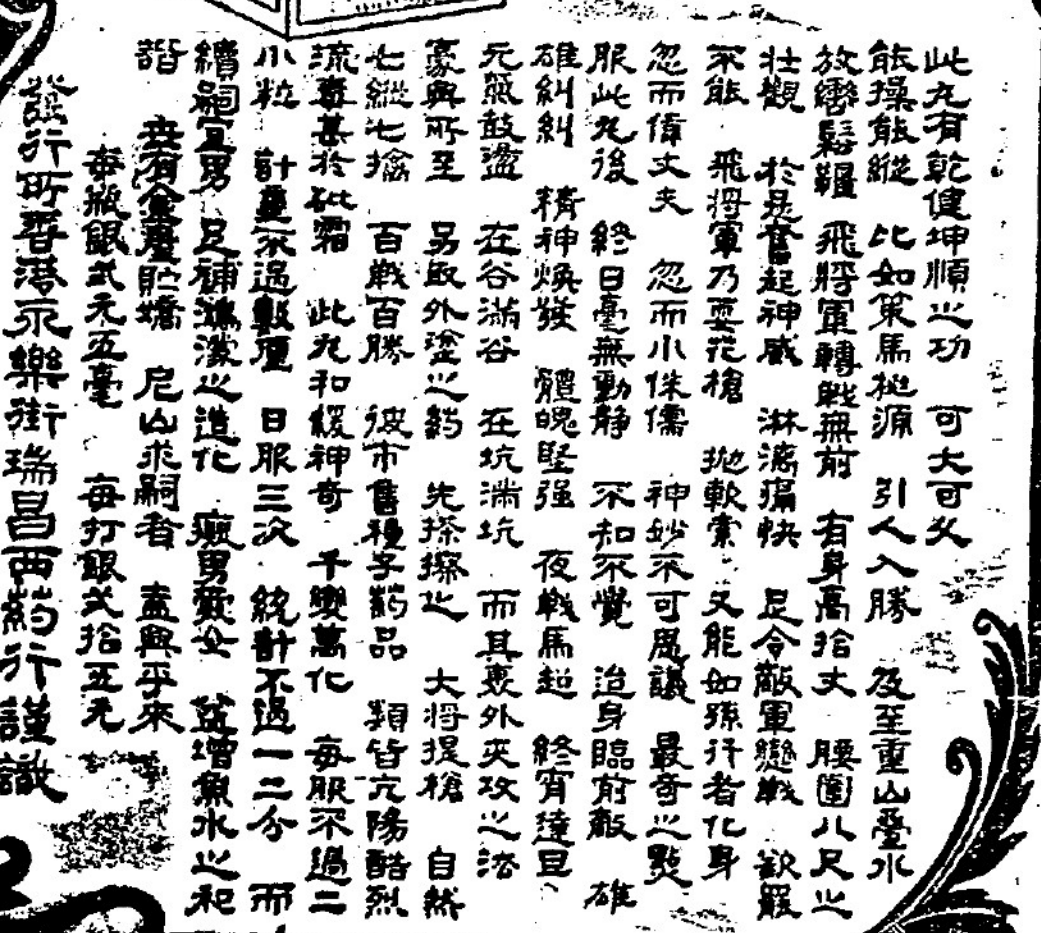 此丸有乾健坤順之功 可大可久
能操能縱 比如策馬挺源 引人入勝 及至重山疊水
放轡鬆韁 飛將軍轉戰無前 有身高拾丈 腰圍八尺之
壯觀 於是奮起神威 淋漓痛快 足令敵軍戀戰 欲罷
不能 飛將軍乃耍花槍 拋軟索 又能如孫行者化身
忽而偉丈夫 忽而小侏儒 神妙不可思議 最奇之點
服此丸後 終日毫無動靜 不知不覺 迨身臨前敵 雄
雄糾糾 精神煥發 體魄堅强 夜戰馬超 終宵達旦
元氣鼓盪 在谷滿谷 在坑滿坑 而其裏外夾攻之法
豪興所至 另取外塗之葯 先搽擦化 大將提槍 自然
七縱七擒 百戰百勝 彼市售種子葯品 類皆亢陽酷烈
流毒甚於砒霜 此丸和緩神奇 千變萬化 每服不過二
小粒 計重不過數厘 日服三次 統計不過一二分 而
續嗣宜男 足補鴻濛之造化 癡男愛女 益增魚水之和
諧 有金屋貯嬌 尼山求嗣者 盍興乎來
每瓶銀弍元五毫 每打銀弍拾五元
發行所香港永樂街瑞昌西葯行謹識